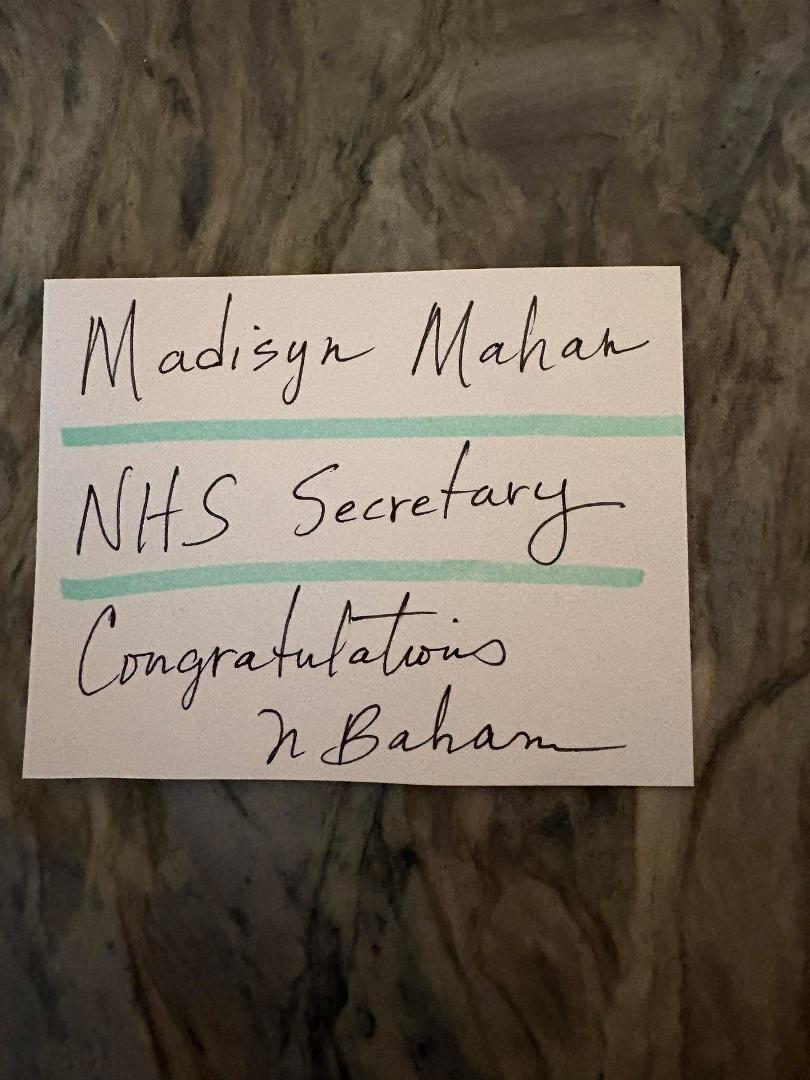 Madisyn Mahan
NHS Secretary
Congratulations
N Baham